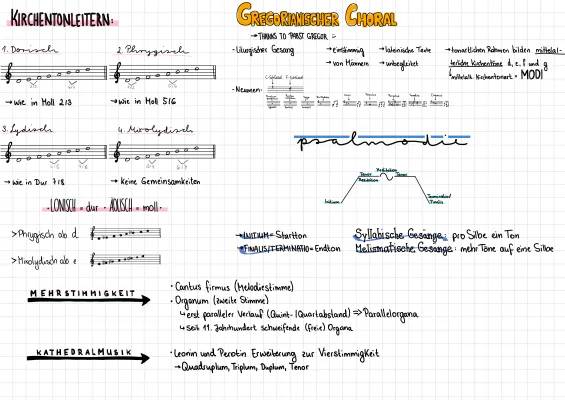 KIRCHENTONLEITERN:
1. Dorisch
2. Phrygisch
→ wie in Moll 2/3
→ wie in Moll 5/6
3. Lydisch
4. Mixolydisch
→ wie in Dur 7/8
→ keine Gemeinsamkeiten
· IONISCH = dur · ÄOLISCH = moll ·
> Phrygisch ab d
> Mixolydisch ab e
GREGORIANISCHER CHORAL
→ THANKS TO PABST GREGOR
- Liturgischer Gesang
→ einstimmig
→ von Männern
→ lateinische Texte
→ unbegleitet
→ tonartlichen Rahmen bilden mittelal-
terliche Kirchentöne d, e, f und g
mittelalt. Kirchentonart = MODI
- Neumen:
psalmodie
Initium
Tenor
Mediation
Tenor
Terminatio/
Finalis
→ INITIUM = Startton
→ FINALIS/TERMINATIO = Endton
Syllabische Gesänge: pro Silbe ein Ton
Melismatische Gesänge: mehr Töne auf eine Silbe
MEHRSTIMMIGKEIT
· Cantus firmus (Melodiestimme)
· Organum (zweite Stimme)
↳ erst paralleler Verlauf (Quint-/Quartabstand) ⇒ Parallelorgana
↳ seit 11. Jahrhundert schweifende (freie) Organa
KATHEDRALMUSIK
· Leonin und Perotin Erweiterung zur Vierstimmigkeit
→ Quadruplum, Triplum, Duplum, Tenor